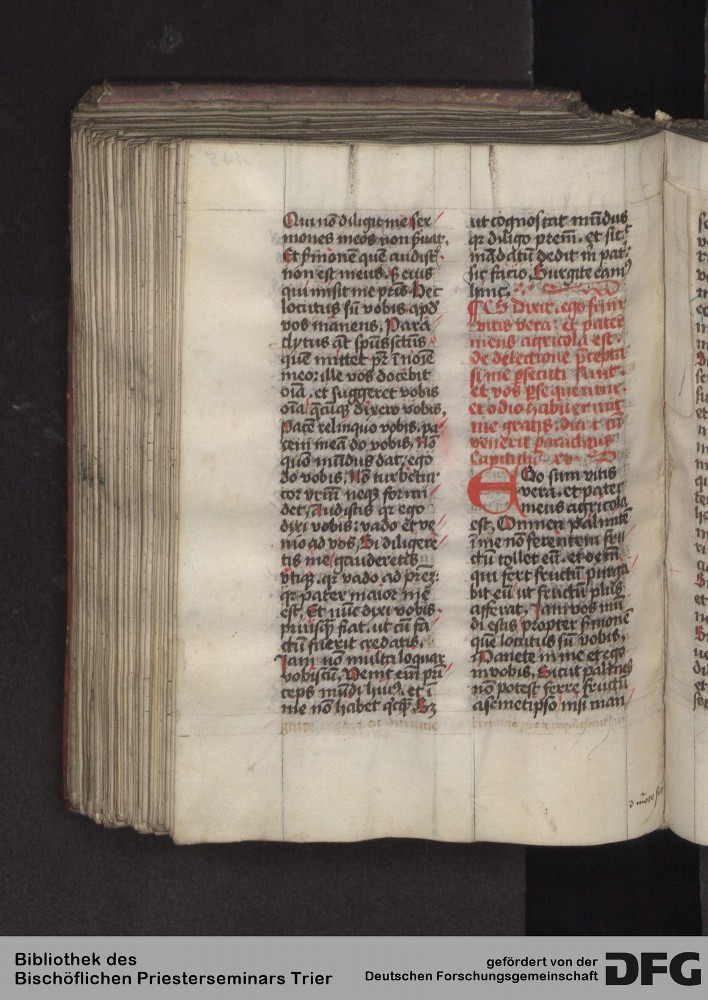 Qui nō diligit me ser
mones meos non ẜuat.
Et ẜmonē quē audistꝭ
non est meus. ẜ eius
qui misit me pr̄is. Hec
locutus sū vobis. apd̛
vos manens. Para
clytus āt spūssctūs
quē mittet pr̄ ī noīe
meo: ille vos docebit
oīa. et suggeret vobis
oīa q̄cūqꝫ dixero vobis.
Pacē relinquo vobis. pa
cem meā do vobis. Nō
quō mūdus dat. ego
do vobis. Nō turbetur
cor vr̄m neqꝫ formi
det. Audistis qꝛ ego
dixi vobis: vado et ve
nio ad vos. Si diligere
tis me gauderetis
vtiqꝫ. qꝛ vado ad prēꝫ:
qꝛ pater maior me
est. Et nūc dixi vobis.
priusqꝫ fiat. ut cū fa
ctū fuerit credatis.
Iam nō multa loquar
vobiscū. Venit eīm prī
ceps mūdi huiꝰ. et ī
me nō habet qͥcqꝫ. Sꝫ
ut cognoscat mūdus
qꝛ diligo prēm. et sicͭ
mādatū dedit m̄ patꝭ
sic facio. Surgite eamꝰ
hinc.
IhS dixit. ego sum
vitis vera: et pater
meus agricola est.
de delectione p̄cepta
si me ꝑsecuti sunt.
et vos ꝑsequentur.
et odio habuerunt
me gratis. dicit cū
venerit paraclitus
Capitulū xv
Ego sum vitis
vera. et pater
meus agricola
est. Omnem palmitē
ī me nō ferentem fru
ctū tollet eū. et oēm
qui fert fructū purga
bit eū ut fructū plus
afferat. Iam vos mū
di estis propter ẜmonē
quē locutus sū vobis.
Manete in me et ego
in vobis. Sicut palmes
nō potest ferre fructū
a semetipso nisi man
Bibliothek des
Bischöflichen Priesterseminars Trier
gefördert von der
Deutschen Forschungsgemeinschaft
DFG